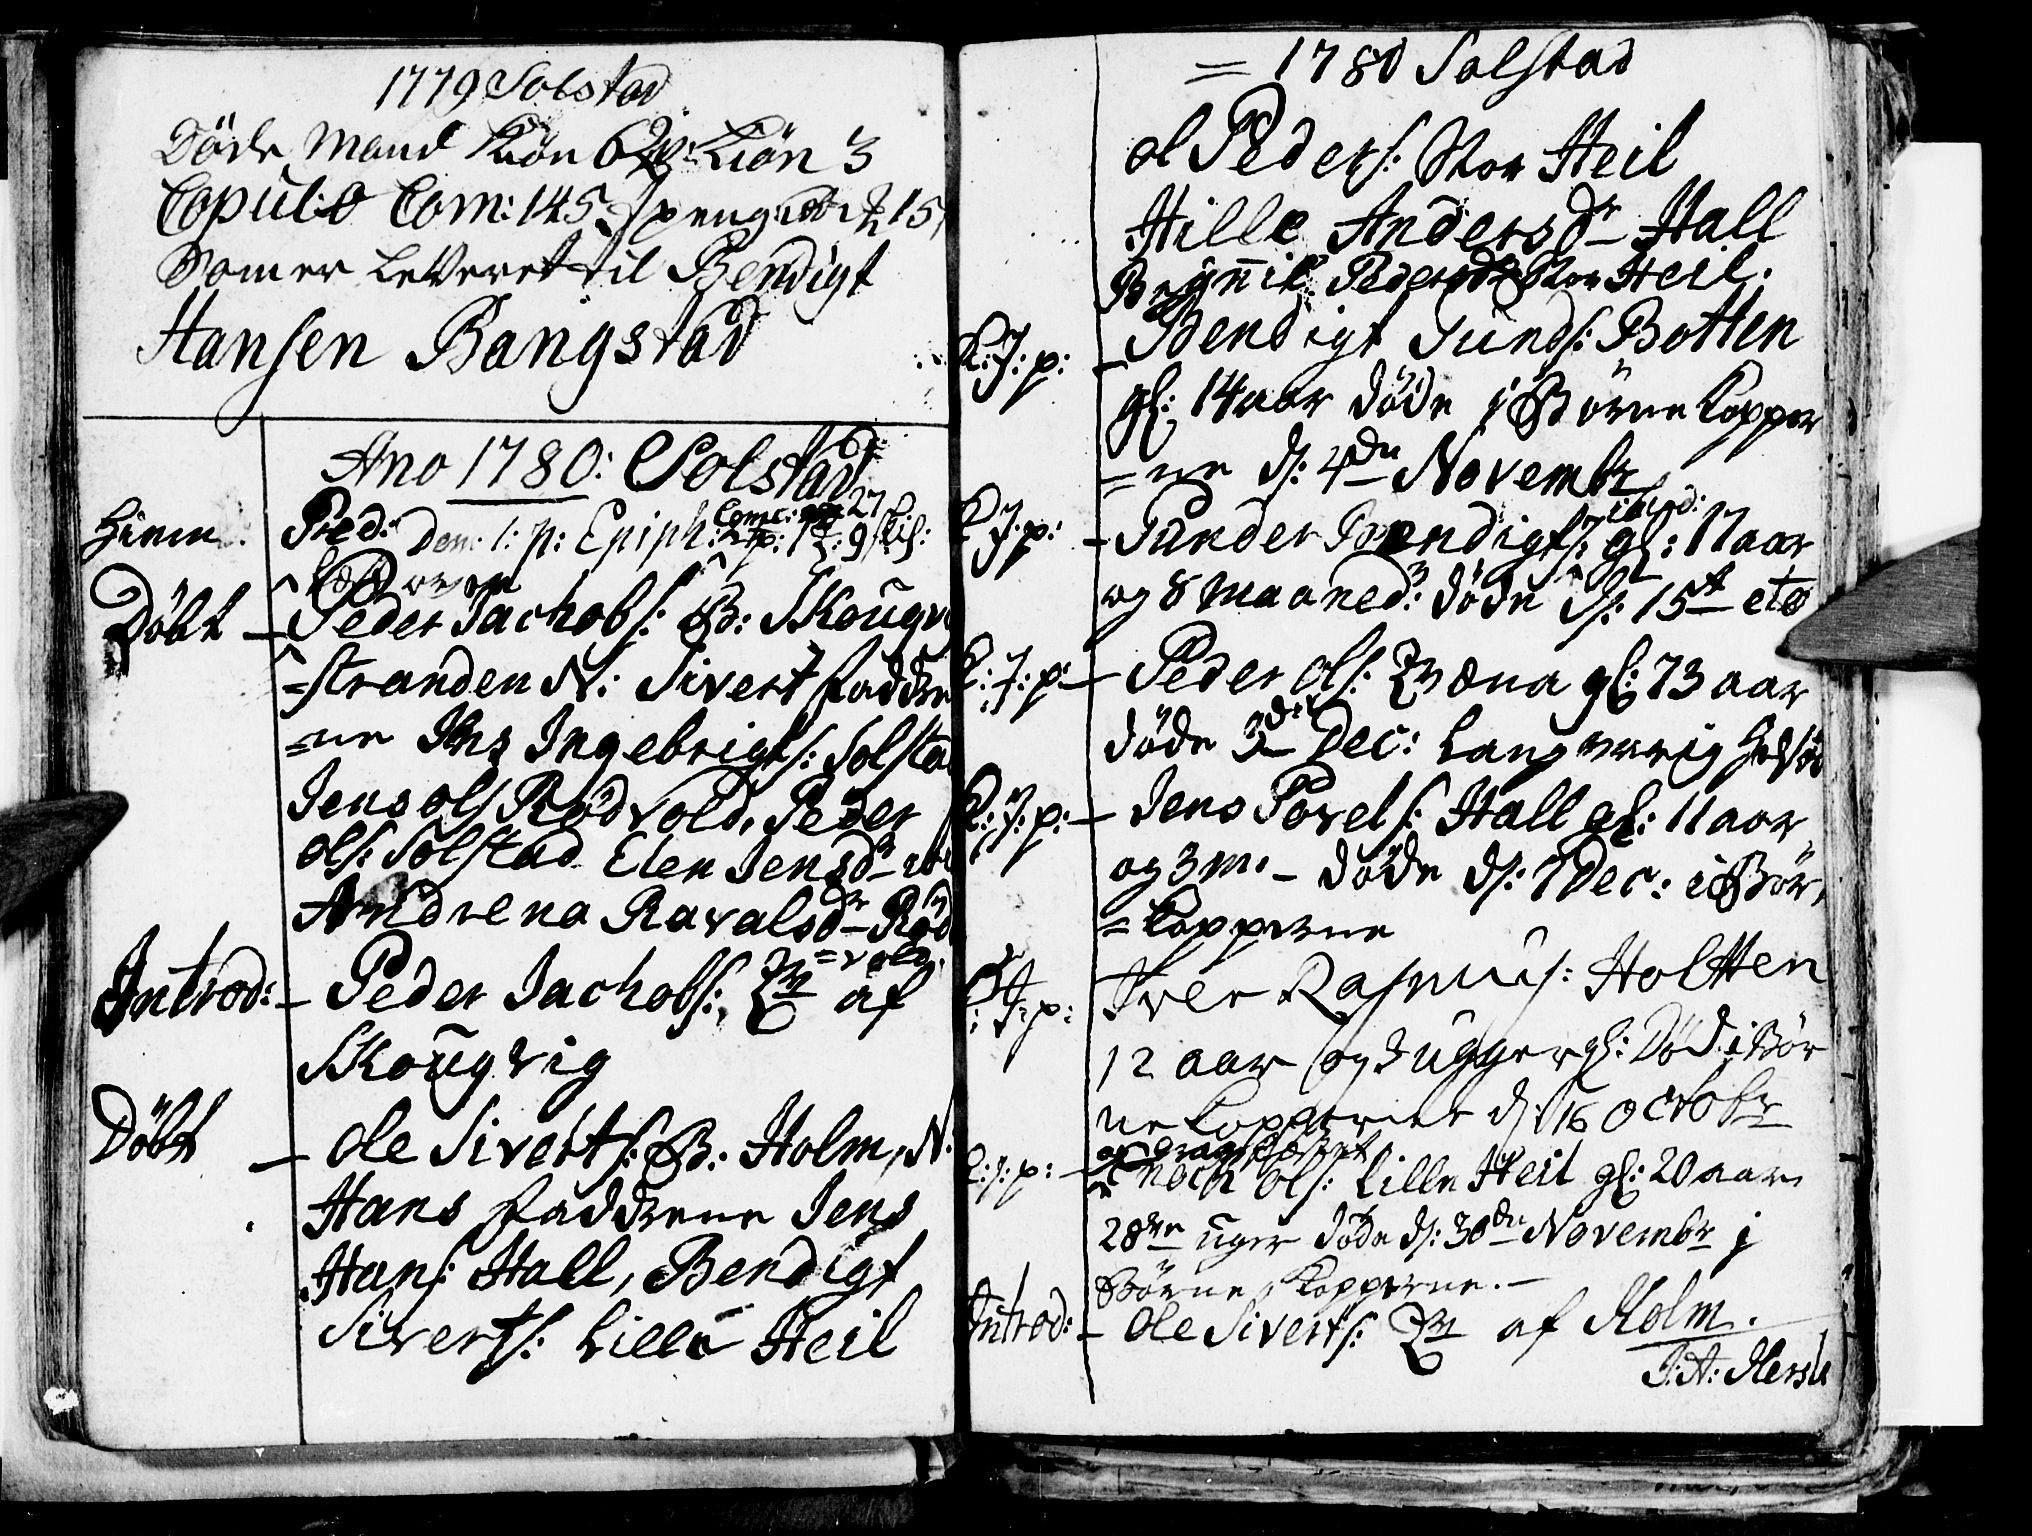 1779 Solstad
Döde Mand Kiön 6 Kiön 3
Copul: 0 Com: 145 15
Som er Leveret til Bendigt
Hansen Bangstad
Ano 1780: Solstad
Pred: Dom: 1: p: Epiph: Com: 27
Döbt – Peder Jachobs: B: Skougv
=stranden N: Sivert fadder
=ne Ingebrigts: Solsta
Jens Ols Rödvold, Peder
Ols: Solstad Elen Jensdr
Andrena Ravalsdr Röd
=vold.
Introd: – Peder Jachobs: af
Skougvig
Döbt – Ole Siverts: B: Holm, N:
Hans fadderne Jens
Hans: Hall, Bendigt
Siverts: Lille Heil
= 1780 Solstad
Ol Peders: Stor Heil
Hille Andersdr Hall
Pedersdr Stor Heil.
K: J: p: – Bendigt Tunds: Botten
gl: 14 aar döde i Börne Kopper
=ne d: 4de Novembr
K: J: p: – Tunder Bendigts: gl: 17 aar
og 8 Maaned: döde d: 15t
K: J: p: – Peder Ols: gl: 73 aar
döde 3die Dec: Langvarig
K: J: p: – Jens Povels: Hall gl: 11 aar
og 3 m: – döde d: 7 Dec: i Bör
=Kopperne
K: J: p: Iver Rasmus: Holtten
12 aar og 3 ugger gl: Död i Bör
ne Kopperne d: 16 Octobr
K: J: p: – Enoch Ols: Lille Heil gl: 20 aar
28 uger döde d: 30de Novembr i
Börne Kopperne. –
Introd: – Ole Siverts: af Holm.